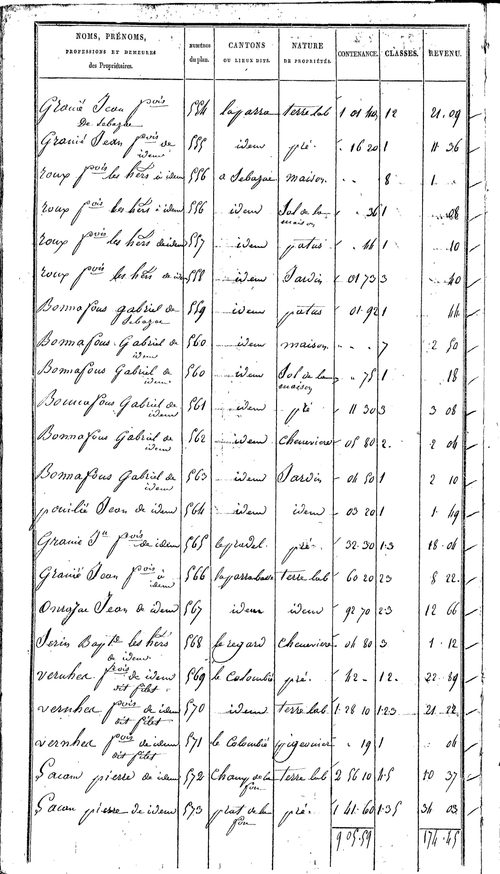 NOMS, PRÉNOMS, PROFESSIONS ET DEMEURES des Propriétaires. NUMÉROS du plan. CANTONS OU LIEUX DITS. NATURE DE PROPRIÉTÉS. CONTENANCE. CLASSES. REVENU.
Granié Jean fçois De Sebazac 554 laparra terre lab 1 01 40 12 21 09
Granié Jean fçois de idem 555 idem pré 16 20 1 11 36
roux fçois les hérs à idem 556 a Sebazac maison 8 1
roux fçois les hérs à idem 556 idem Sol de la maison 36 1 08
roux fçois les hérs de idem 557 idem patus 46 1 10
roux fçois les hérs de idem 558 idem Jardin 01 73 3 40
Bonnafous gabriel de Sebazac 559 idem patus 01 92 1 44
Bonnafous Gabriel de idem 560 idem maison 7 2 50
Bonnafous Gabriel de idem 560 idem Sol de la maison 75 1 18
Bonnafous Gabriel de idem 561 idem pré 11 30 3 3 08
Bonnafous Gabriel de idem 562 idem Cheneviere 05 80 2 2 04
Bonnafous Gabriel de idem 563 idem Jardin 04 50 1 2 10
Jean de idem 564 idem idem 03 20 1 1 49
Granié Jn fçois de idem 565 le pradel pré 32 30 1.3 18 04
Granié Jean fçois à idem 566 laparra basse terre lab 60 20 23 8 22
Jean de idem 567 idem idem 92 70 23 12 66
Serin Bapte les hérs de idem 568 le regard Cheneviere 04 80 3 1 12
vernhea fçois de idem dit filet 569 le Colombié pré 42 12 22 89
vernhea fçois de idem dit filet 570 idem terre lab 1 28 10 1.23 21 22
vernhea fçois de idem dit filet 571 le Colombié pigeonier 19 1 06
Lacam pierre de idem 572 Champ de la fon terre lab 2 56 10 4.5 10 37
Lacam pierre de idem 573 prat de la fon pré 1 41 60 1.35 34 03
9 05 59 174 45